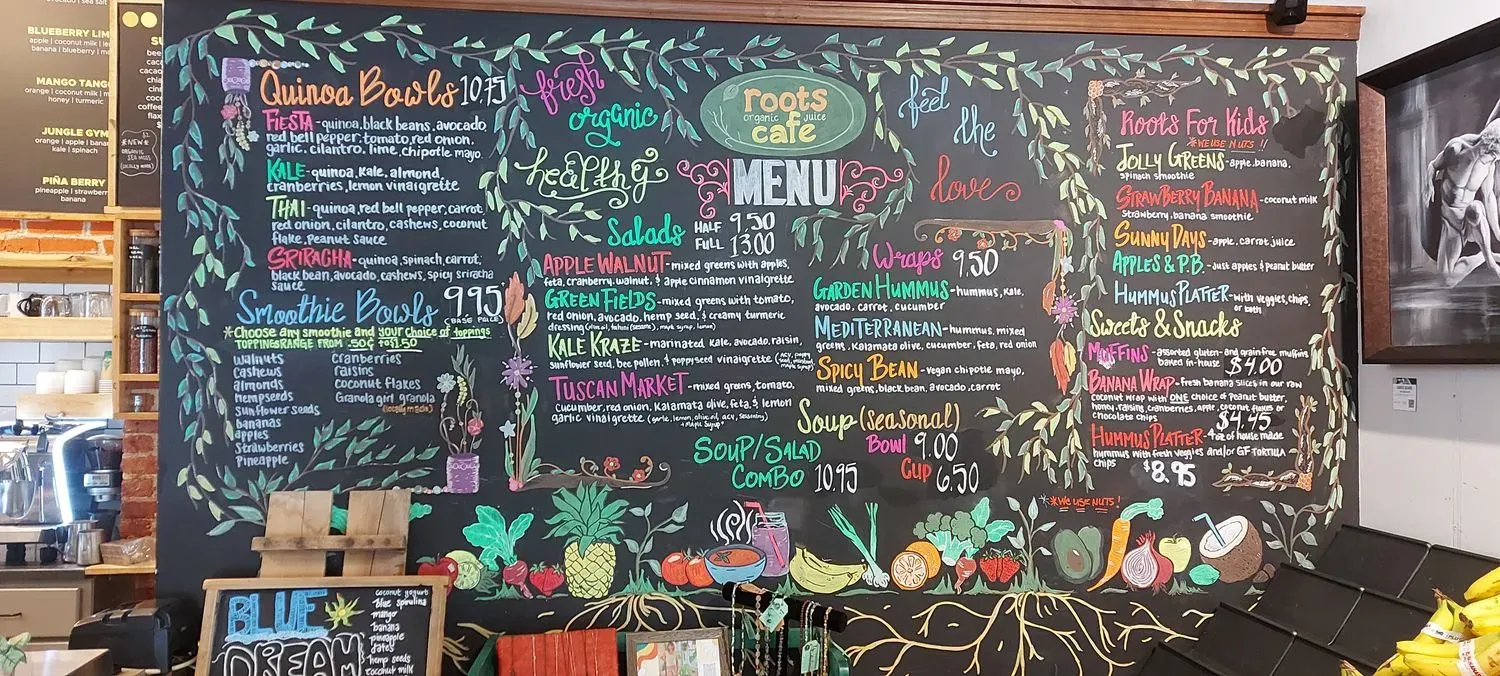 BLUEBERRY LIM
apple | coconut milk | le
banana | blueberry | m
MANGO TANG
orange | coconut milk | m
honey | turmeric
JUNGLE GYM
orange | apple | banana
kale | spinach
PIÑA BERRY
pineapple | strawberr
banana
*NEW*
ORGANIC
SEA MOSS
Quinoa Bowls 10.75
FIESTA - quinoa, black beans, avocado,
red bell pepper, tomato, red onion,
garlic, cilantro, lime, chipotle mayo
KALE - quinoa, kale, almond,
cranberries, lemon vinaigrette
THAI - quinoa, red bell pepper, carrot,
red onion, cilantro, cashews, coconut
flake, peanut sauce
SRIRACHA - quinoa, spinach, carrot,
black bean, avocado, cashews, spicy sriracha
sauce
Smoothie Bowls 9.95
(BASE PRICE)
*Choose any smoothie and your choice of toppings
TOPPINGS RANGE FROM .50¢ TO $1.50
walnuts
cashews
almonds
hempseeds
sunflower seeds
bananas
apples
Strawberries
Pineapple
cranberries
raisins
coconut flakes
Granola girl granola
(locally made)
fresh
organic
healthy
roots
organic juice
cafe
MENU
feel
the
love
Salads HALF 9.50
FULL 13.00
APPLE WALNUT - mixed greens with apples,
feta, cranberry, walnut, & apple cinnamon vinaigrette
GREEN FIELDS - mixed greens with tomato,
red onion, avocado, hemp seed, & creamy turmeric
dressing (olive oil, tahini (sesame), maple syrup, lemon)
KALE KRAZE - marinated kale, avocado, raisin,
sunflower seed, bee pollen, & poppyseed vinaigrette
TUSCAN MARKET - mixed greens, tomato,
cucumber, red onion, kalamata olive, feta, & lemon
garlic vinaigrette (garlic, lemon, olive oil, acv, seasoning)
+ maple syrup
Wraps 9.50
GARDEN HUMMUS - hummus, kale,
avocado, carrot, cucumber
MEDITERRANEAN - hummus, mixed
greens, kalamata olive, cucumber, feta, red onion
SPICY BEAN - vegan chipotle mayo,
mixed greens, black bean, avocado, carrot
Soup (seasonal)
BOWL 9.00
CUP 6.50
SOUP/SALAD
COMBO 10.95
Roots For Kids
*WE USE NUTS!!
JOLLY GREENS - apple, banana,
spinach smoothie
STRAWBERRY BANANA - coconut milk
strawberry, banana smoothie
SUNNY DAYS - apple, carrot juice
APPLES & P.B. - Just apples & peanut butter
HUMMUS PLATTER - with veggies, chips,
or both
Sweets & Snacks
MUFFINS - assorted gluten- and grain free muffins
baked in-house $4.00
BANANA WRAP - fresh banana slices in our raw
coconut wrap with ONE choice of peanut butter,
honey, raisins, cranberries, apple, coconut flakes or
chocolate chips $4.45
HUMMUS PLATTER - 4oz of house made
hummus with fresh veggies and/or GF TORTILLA
chips $8.95
*WE USE NUTS!
BLUE
DREAM
coconut yogurt
blue spirulina
mango
banana
pineapple
dates
hemp seeds
coconut milk